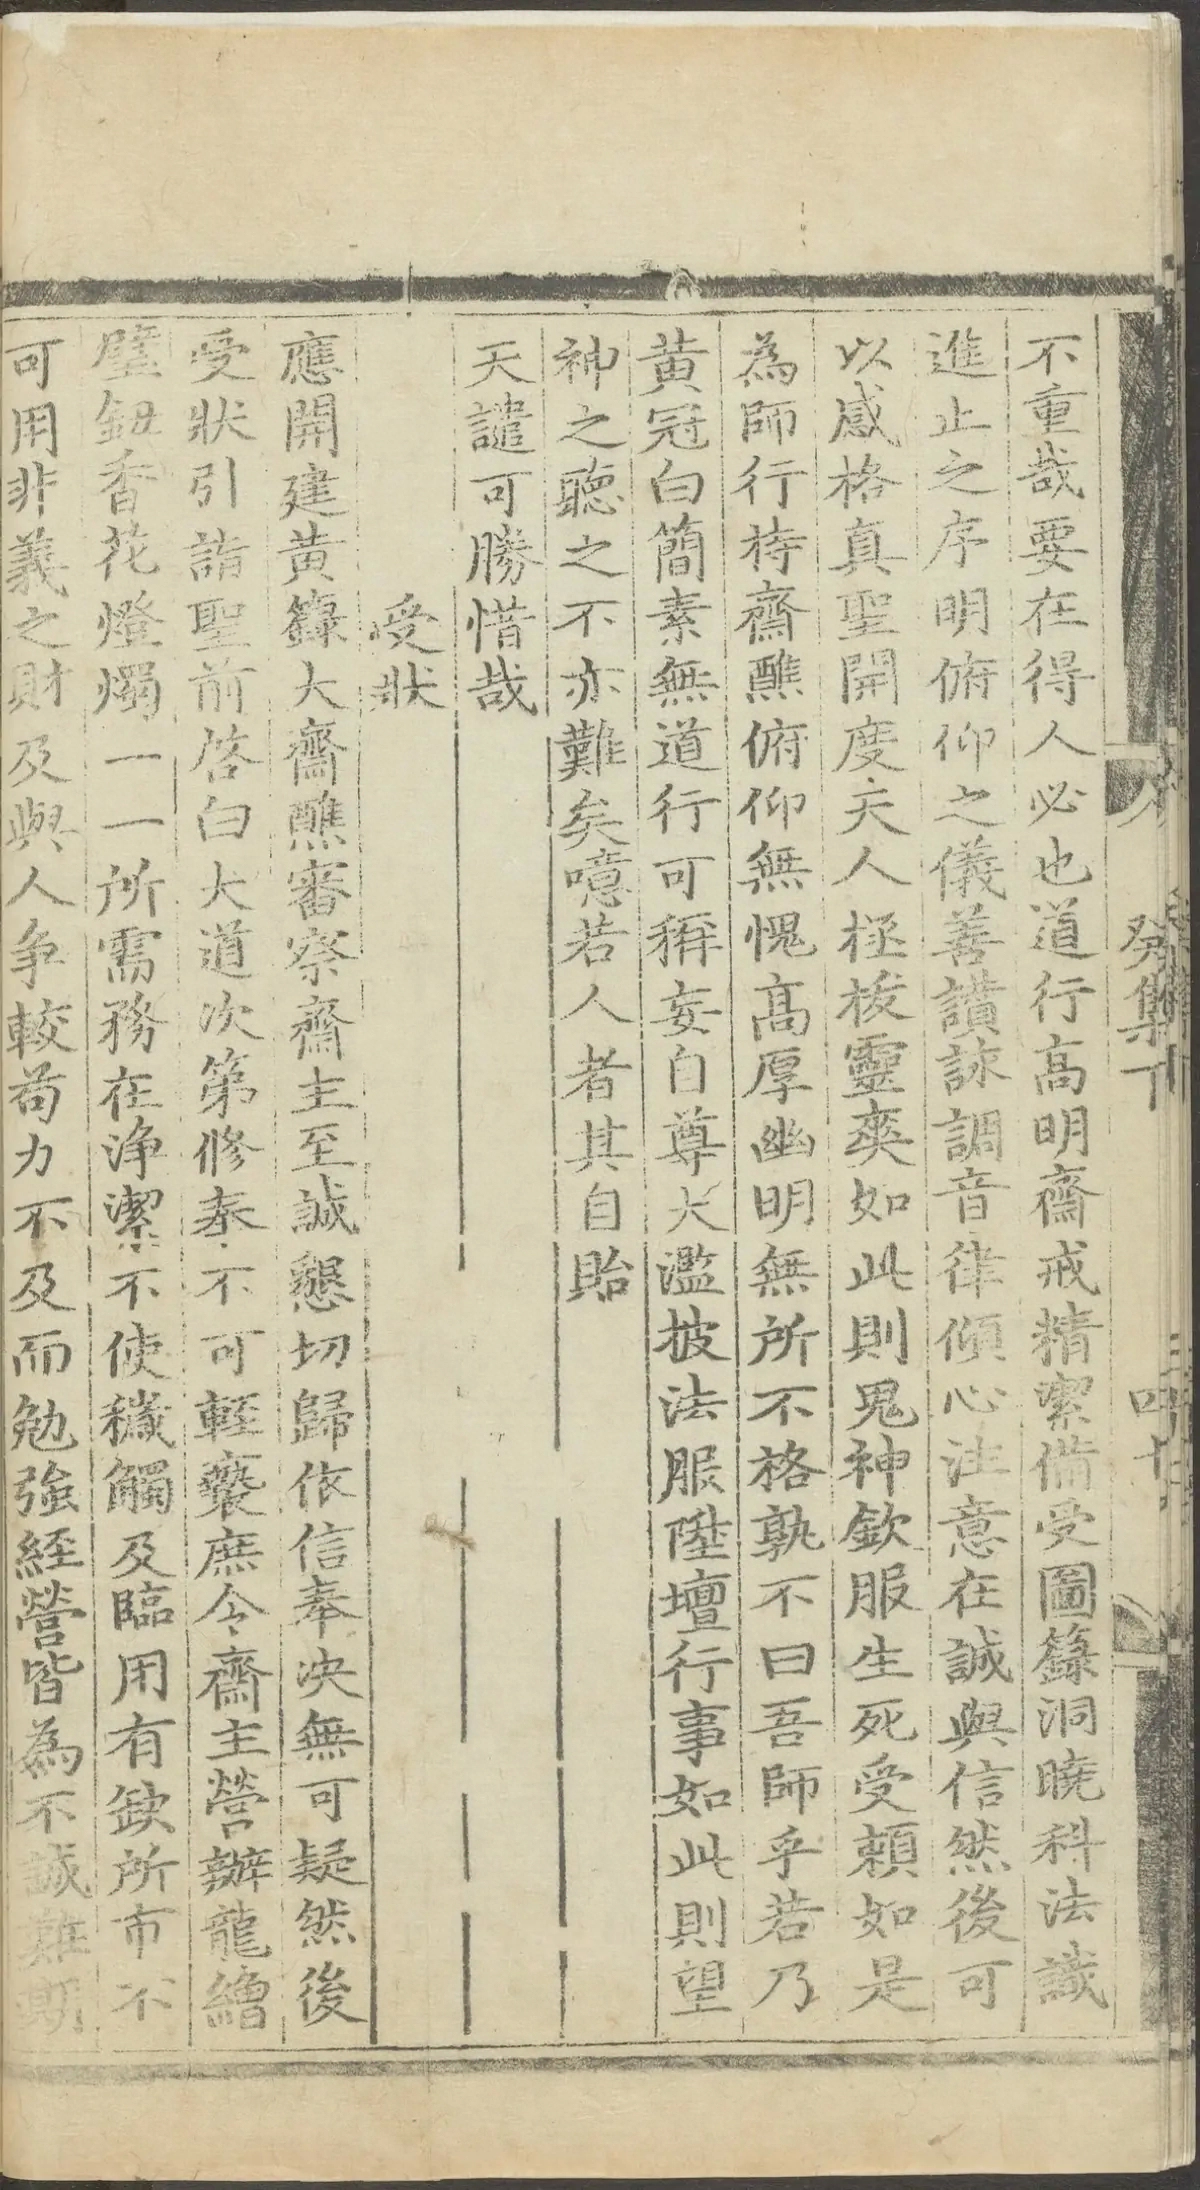 癸集下
不重哉要在得人必也道行高明齋戒精潔備受圖籙洞曉科法識
進止之序明俯仰之儀善讚詠調音律傾心注意在誠與信然後可
以感格真聖開度天人拯拔靈爽如此則鬼神欽服生死受賴如是
為師行持齋醮俯仰無愧高厚幽明無所不格孰不曰吾師乎若乃
黃冠白簡素無道行可稱妄自尊大濫披法服陞壇行事如此則望
神之聽之不亦難矣噫若人者其自貽
天譴可勝惜哉
受狀
應開建黃籙大齋醮審察齋主至誠懇切歸依信奉决無可疑然後
受狀引詣聖前啓白大道次第修奏不可輕褻庶令齋主營辦龍繒
璧鈕香花燈燭一一所需務在淨潔不使穢觸及臨用有缺所市不
可用非義之財及與人爭較苟力不及而勉強經營皆為不誠難期